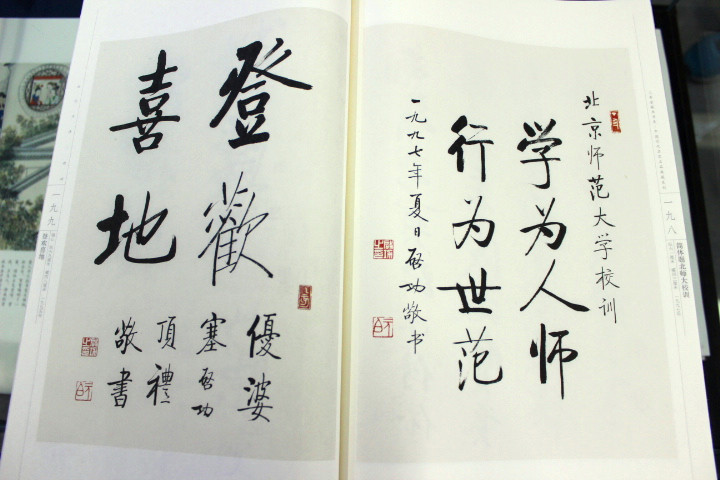 北京师范大学校训
学为人师
行为世范
一九九七年夏日啓功敬书
一九八
登歡
喜地
優婆
塞啓功
頂禮
敬書
一九九